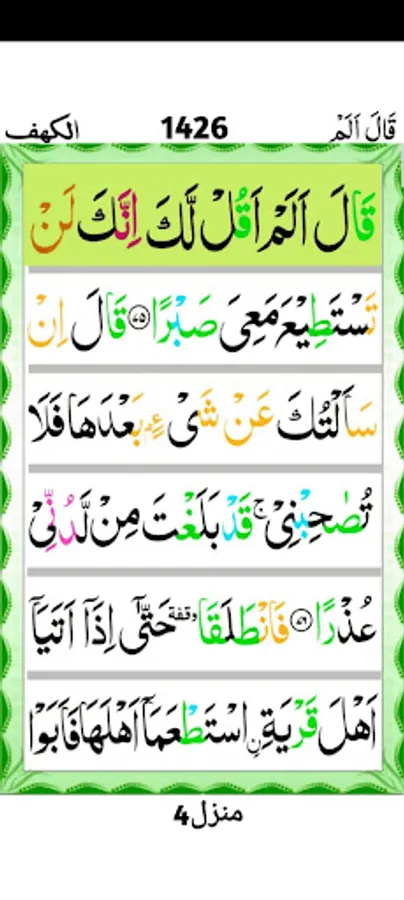 قَالَ اَلَمْ 1426 الكهف
قَالَ اَلَمْ اَقُلْ لَّكَ اِنَّكَ لَنْ
تَسْتَطِيْعَ مَعِىَ صَبْرًا ۝۷۵ قَالَ اِنْ
سَاَلْتُكَ عَنْ شَىْءٍۭ بَعْدَهَا فَلَا
تُصٰحِبْنِىْ ۚ قَدْ بَلَغْتَ مِنْ لَّدُنِّىْ
عُذْرًا ۝۷۶ فَانْطَلَقَا وقفة حَتّٰٓى اِذَاۤ اَتَيَاۤ
اَهْلَ قَرْيَةِ ۨ اسْتَطْعَمَاۤ اَهْلَهَا فَاَبَوْا
منزل4